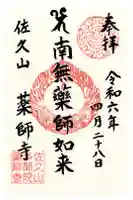 奉拝
令和六年
四月二十八日
南無薬師如来
佐久山
薬師寺